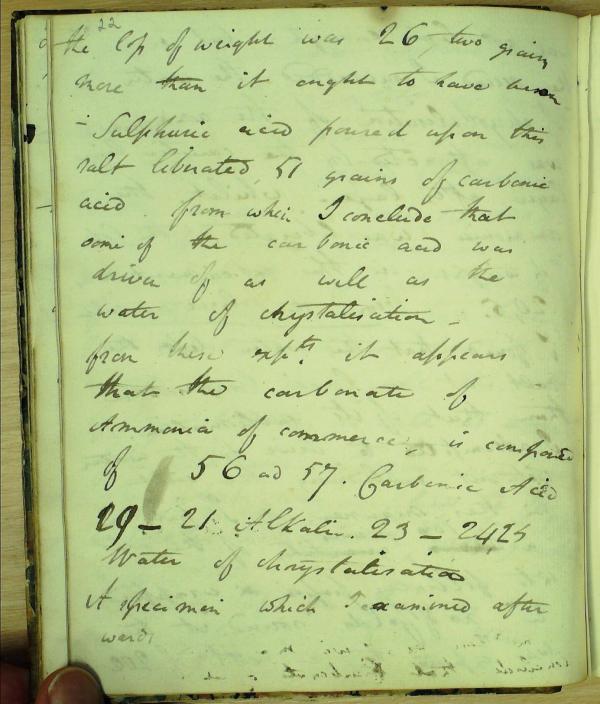 22
the loss of weight was 26 two grains
more than it ought to have been
- Sulphuric acid poured upon this
salt liberated 51 grains of carbonic
acid from which I conclude that
some of the carbonic acid was
driven of as well as the
water of chrystalisation -
from these expts. it appears
that the carbonate of
Ammonia of commerce, is composed
of 56 ad 57. Carbonic Acid
- 21 Alkali. 23 -
Water of chrystalisation
A specimen which I examined after
wards